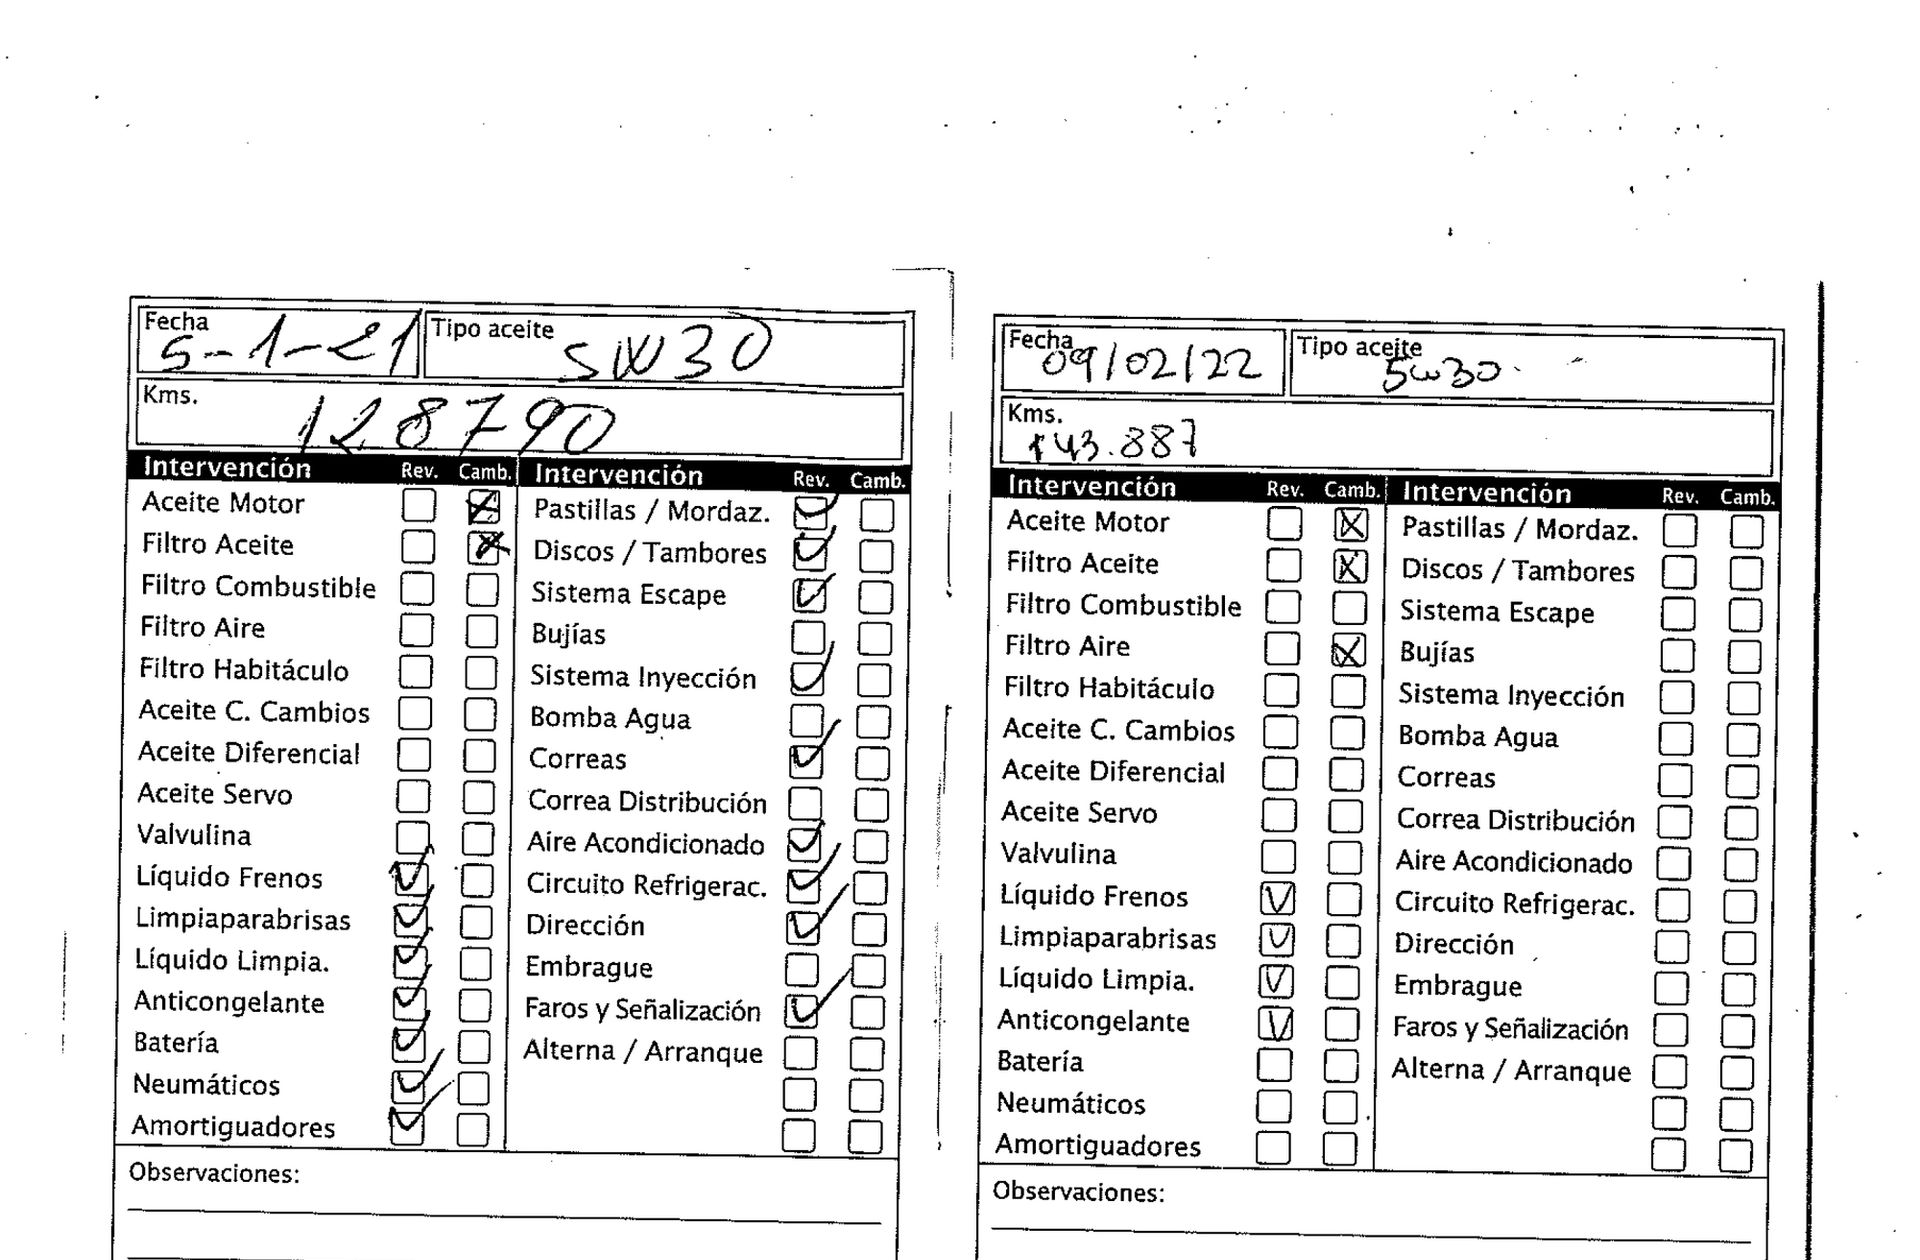 Fecha
5-1-21
Tipo aceite
5W30
Kms.
128790
Intervención Rev. Camb. Intervención Rev. Camb.
Aceite Motor Pastillas / Mordaz.
Filtro Aceite Discos / Tambores
Filtro Combustible Sistema Escape
Filtro Aire Bujías
Filtro Habitáculo Sistema Inyección
Aceite C. Cambios Bomba Agua
Aceite Diferencial Correas
Aceite Servo Correa Distribución
Valvulina Aire Acondicionado
Líquido Frenos Circuito Refrigerac.
Limpiaparabrisas Dirección
Líquido Limpia. Embrague
Anticongelante Faros y Señalización
Batería Alterna / Arranque
Neumáticos
Amortiguadores
Observaciones:
Fecha
09/02/22
Tipo aceite
5w30
Kms.
143.887
Intervención Rev. Camb. Intervención Rev. Camb.
Aceite Motor Pastillas / Mordaz.
Filtro Aceite Discos / Tambores
Filtro Combustible Sistema Escape
Filtro Aire Bujías
Filtro Habitáculo Sistema Inyección
Aceite C. Cambios Bomba Agua
Aceite Diferencial Correas
Aceite Servo Correa Distribución
Valvulina Aire Acondicionado
Líquido Frenos Circuito Refrigerac.
Limpiaparabrisas Dirección
Líquido Limpia. Embrague
Anticongelante Faros y Señalización
Batería Alterna / Arranque
Neumáticos
Amortiguadores
Observaciones: